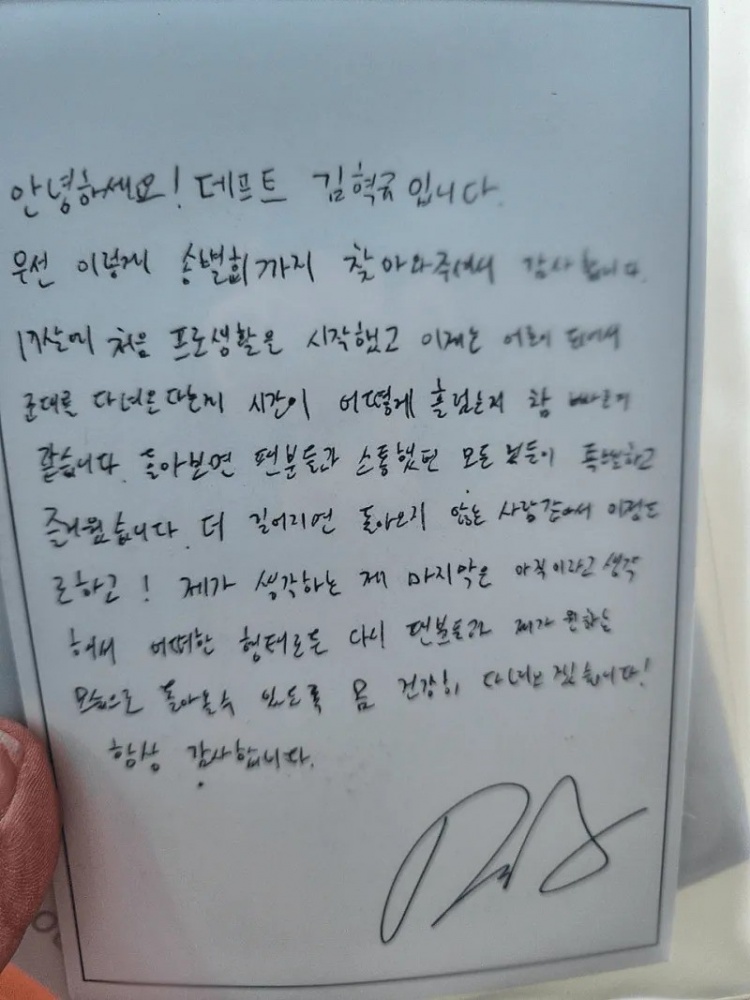 안녕하세요! 데프트 김혁규입니다.
우선 이렇게 송별회까지 찾아와주셔서 감사합니다.
17살에 처음 프로생활을 시작했고 이제는 어른이 되어서
군대를 다녀온다는게 시간이 어떻게 흘렀는지 참 빠른거
같습니다. 돌아보면 팬분들과 소통했던 모든 날들이 특별하고
즐거웠습니다. 더 길어지면 돌아오지 않는 사람같아서 이정도
로하고! 제가 생각하는 제 마지막은 아직이라고 생각
해서 어떠한 형태로든 다시 팬분들과 제가 원하는
모습으로 돌아올수 있도록 몸 건강히 다녀오겠습니다!
항상 감사합니다.